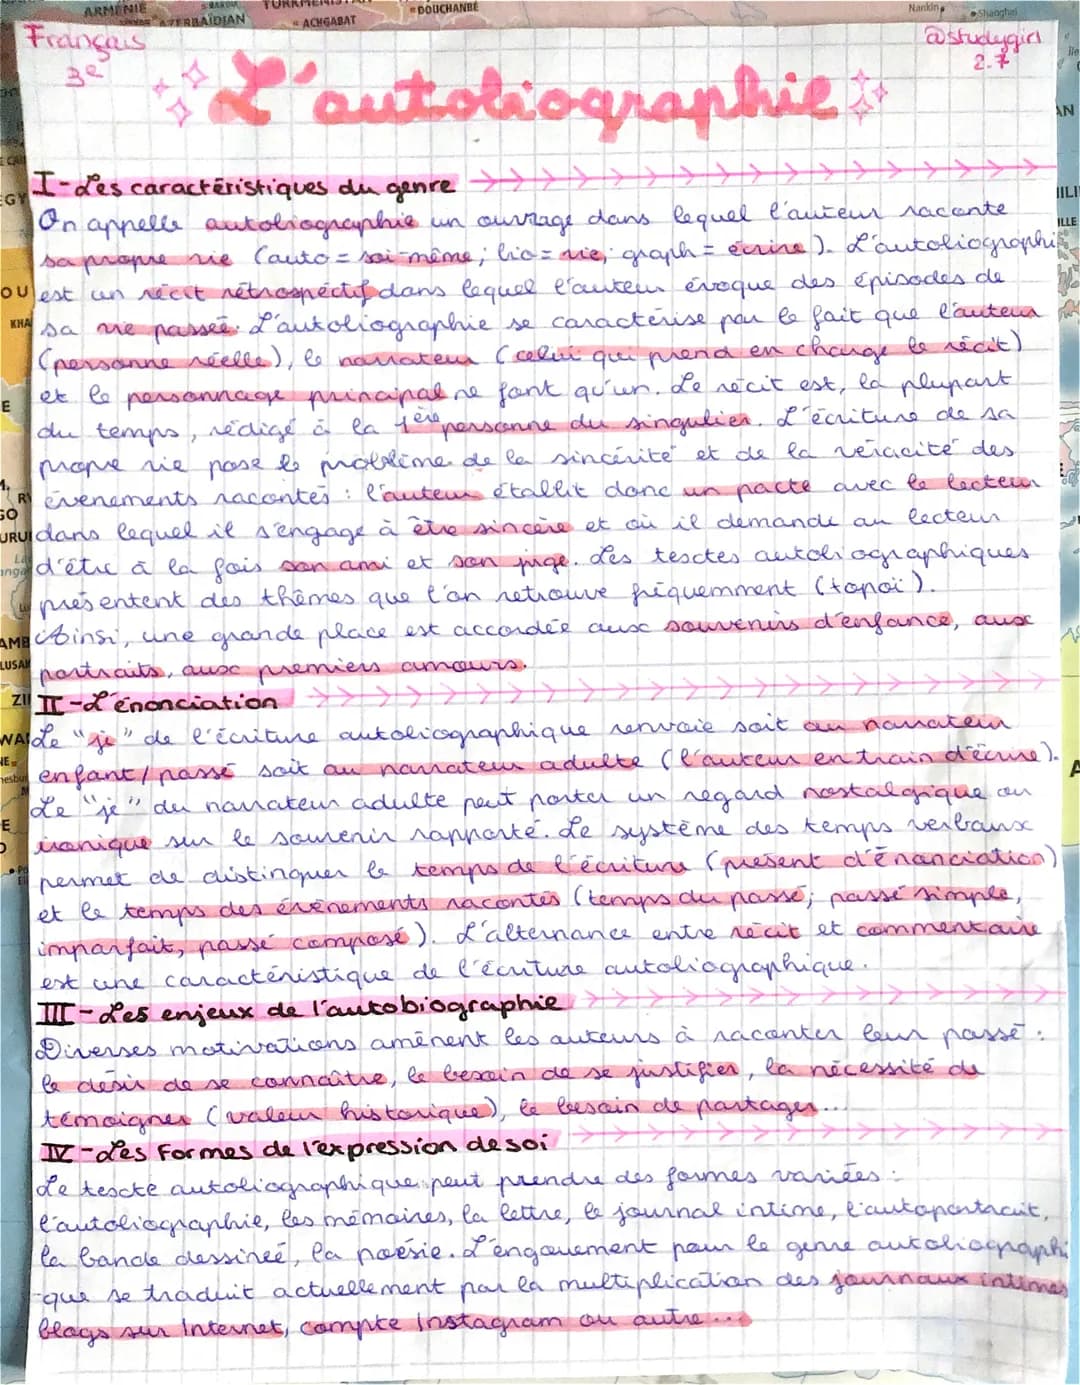 ARMÉNIE
AZERBAÏDJAN
ACHGABAT
DOUCHANBÉ
Nankin
Shanghai
Français
3e
@studygirl
2.7
L'autobiographie
I-Les caractéristiques du genre
On appelle autobiographie un ouvrage dans lequel l'auteur raconte
sa propre vie (auto = soi-même; bio = vie; graph = écrire). L'autobiographie
est un récit rétrospectif dans lequel l'auteur évoque des épisodes de
sa vie passée. L'autobiographie se caractérise par le fait que l'auteur
(personne réelle), le narrateur (celui qui prend en charge le récit)
et le personnage principal ne font qu'un. Le récit est, la plupart
du temps, rédigé à la 1ère personne du singulier. L'écriture de sa
propre vie pose le problème de la sincérité et de la véracité des
évenements racontés : l'auteur établit donc un pacte avec le lecteur
dans lequel il s'engage à être sincère et où il demande au lecteur
d'être à la fois son ami et son juge. Les textes autobiographiques
présentent des thèmes que l'on retrouve fréquemment (topoï).
Ainsi, une grande place est accordée aux souvenirs d'enfance, aux
portraits, aux premiers amours.
II-L'énonciation
Le "je" de l'écriture autobiographique renvoie soit au narrateur
enfant/passé soit au narrateur adulte (l'auteur en train d'écrire).
Le "je" du narrateur adulte peut porter un regard nostalgique ou
ironique sur le souvenir rapporté. Le système des temps verbaux
permet de distinguer le temps de l'écriture (présent d'énonciation)
et le temps des événements racontés (temps du passé; passé simple,
imparfait, passé composé). L'alternance entre récit et commentaire
est une caractéristique de l'écriture autobiographique.
III-Les enjeux de l'autobiographie
Diverses motivations amènent les auteurs à raconter leur passé :
le désir de se connaître, le besoin de se justifier, la nécessité de
témoigner (valeur historique), le besoin de partager...
IV-Les Formes de l'expression de soi
Le texte autobiographique peut prendre des formes variées :
l'autobiographie, les mémoires, la lettre, le journal intime, l'autoportrait,
la bande dessineé, la poésie. L'engouement pour le genre autobiographi
-que se traduit actuellement par la multiplication des journaux intimes
blogs sur Internet, compte Instagram ou autre...